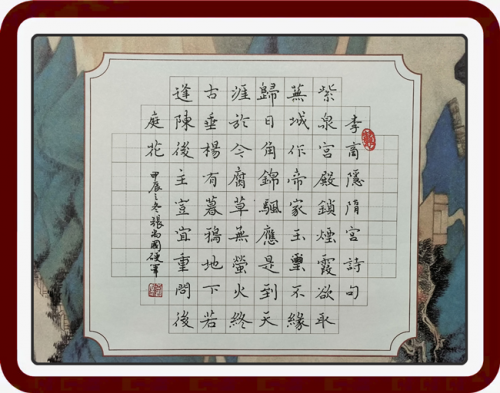 李商隱隋宮詩句
紫泉宮殿鎖煙霞欲取
蕪城作帝家玉璽不緣
歸日角錦颿應是到天
涯於今腐草無螢火終
古垂楊有暮鴉地下若
逢陳後主豈宜重問後
庭花
甲辰之冬張尚國硬筆